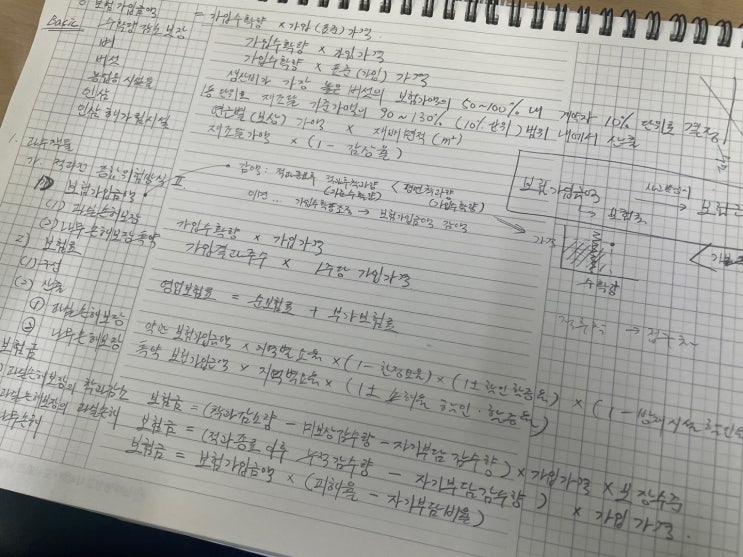 보험가입금액 = 가입수확량 × 가입(표준)가격.
Basic 수확량감소보장 가입수확량 × 가입가격
벼 가입수확량 × 표준(가입)가격
버섯 생산비가 가장 높은 버섯의 보험가액의 50~100% 내 계약자 10% 단위로 결정
농업용시설물 동 단위로 재조달 기준가액의 90~130% (10% 단위) 범위 내에서 산출
인삼 연근별 (보상) 가액 × 재배면적(m²)
인삼 해가림시설 재조달가액 × (1 - 감가상각율)
1. 과수작물
가. 적과전 종합위험방식 Ⅱ
1) 보험가입금액
감액: 적과종료후 적과후착과량 < 평년착과량
(기준수확량) (가입수확량)
이면... 가입수확량조정 → 보험가입금액 감액
보험가입금액 → 보험료
가격
수확량
(1) 과실손해보장 가입수확량 × 가입가격
(2) 나무손해보장특약 가입결과주수 × 1주당 가입가격
2) 보험료
(1) 구성 영업보험료 = 순보험료 + 부가보험료
(2) 산출
① 과실손해보장 보험가입금액 × 지역별요율 × (1 - ) × (1 ± 할인할증율) × (1 - 방재시설할인율
② 나무손해보장 특약 보험가입금액 × 지역별요율 × (1 ± 손해율 할인·할증율)
보험금
과실손해보장의 착과감소 보험금 = (착과감소량 - 미보상감수량 - 자기부담감수량) × 가입가격 × 보장수준
과실손해보장의 과실손해 보험금 = (적과종료 이후 누적감수량 - 자기부담감수량) × 가입가격.
나무손해 보험금 = 보험가입금액 × (피해율 - 자기부담비율)